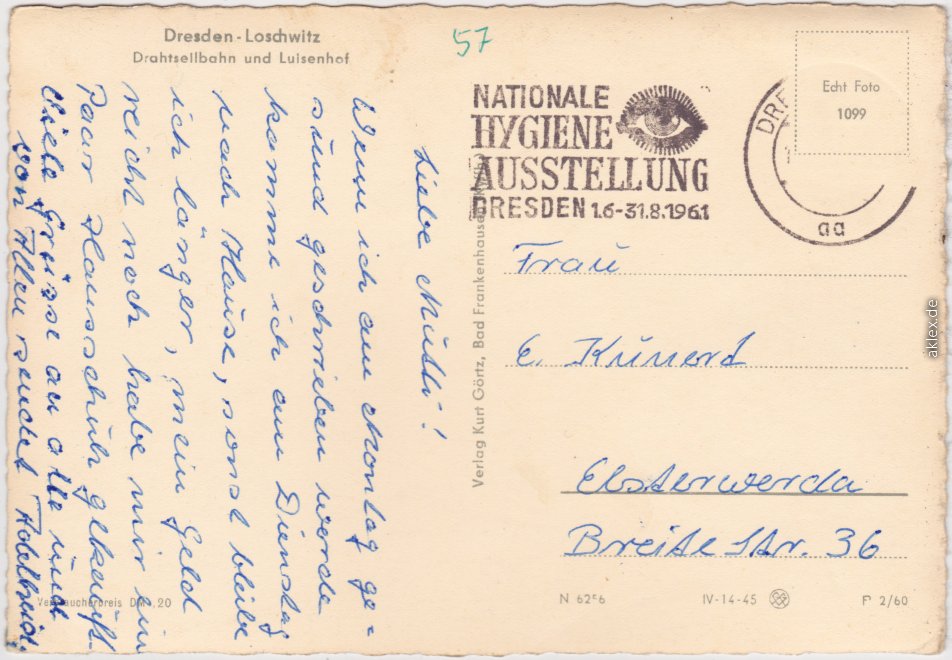 Dresden-Loschwitz
Drahtseilbahn und Luisenhof
57
NATIONALE
HYGIENE
AUSSTELLUNG
DRESDEN 1.6-31.8.1961
DRE
aa
Echt Foto
1099
Liebe Mutti!
Wenn ich am Montag ge-
sund geschrieben werde
komme ich am Dienstag
nach Hause, sonst bleibe
ich länger, mein Geld
reicht noch habe mir ein
Paar Hausschuh gekauft.
Viele Grüsse an alle und
von Allen sendet
Frau
E. Kunerd
Elsterwerda
Breite Str. 36
Verlag Kurt Görtz, Bad Frankenhausen
Verbraucherpreis DM ,20
N 62
IV-14-45
P 2/60
aklex.de